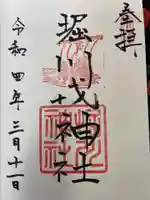 奉拝
堀川戎神社
令和四年三月十一日